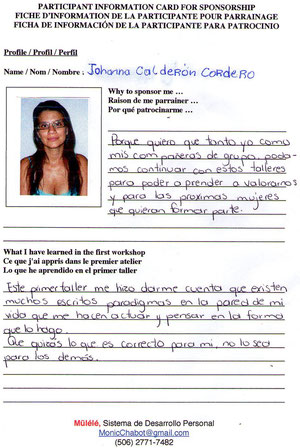 PARTICIPANT INFORMATION CARD FOR SPONSORSHIP
FICHE D'INFORMATION DE LA PARTICIPANTE POUR PARRAINAGE
FICHA DE INFORMACIÓN DE LA PARTICIPANTE PARA PATROCINIO
Profile / Profil / Perfil
Name / Nom / Nombre : Johanna Calderón Cordero
Why to sponsor me ...
Raison de me parrainer ...
Por qué patrocinarme ...
Porque quiero que tanto yo como
mis compañeras de grupo, poda-
mos continuar con estos talleres
para poder a prender a valorarnos
y para las proximas mujeres
que quieran formar parte.
What I have learned in the first workshop
Ce que j'ai appris dans le premier atelier
Lo que he aprendido en el primer taller
Este primer taller me hizo darme cuenta que existen
muchos escritos paradigmas en la pared de mi
vida que me hacen actuar y pensar en la forma
que lo hago.
Que quizás lo que es correcto para mi, no lo sea
para los demás.
Mülélé, Sistema de Desarrollo Personal
MonicChabot@gmail.com
(506) 2771-7482